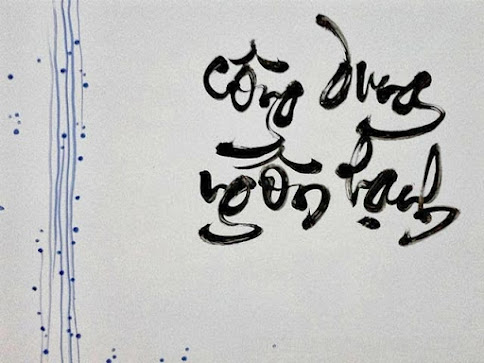 công dung
ngôn hạnh